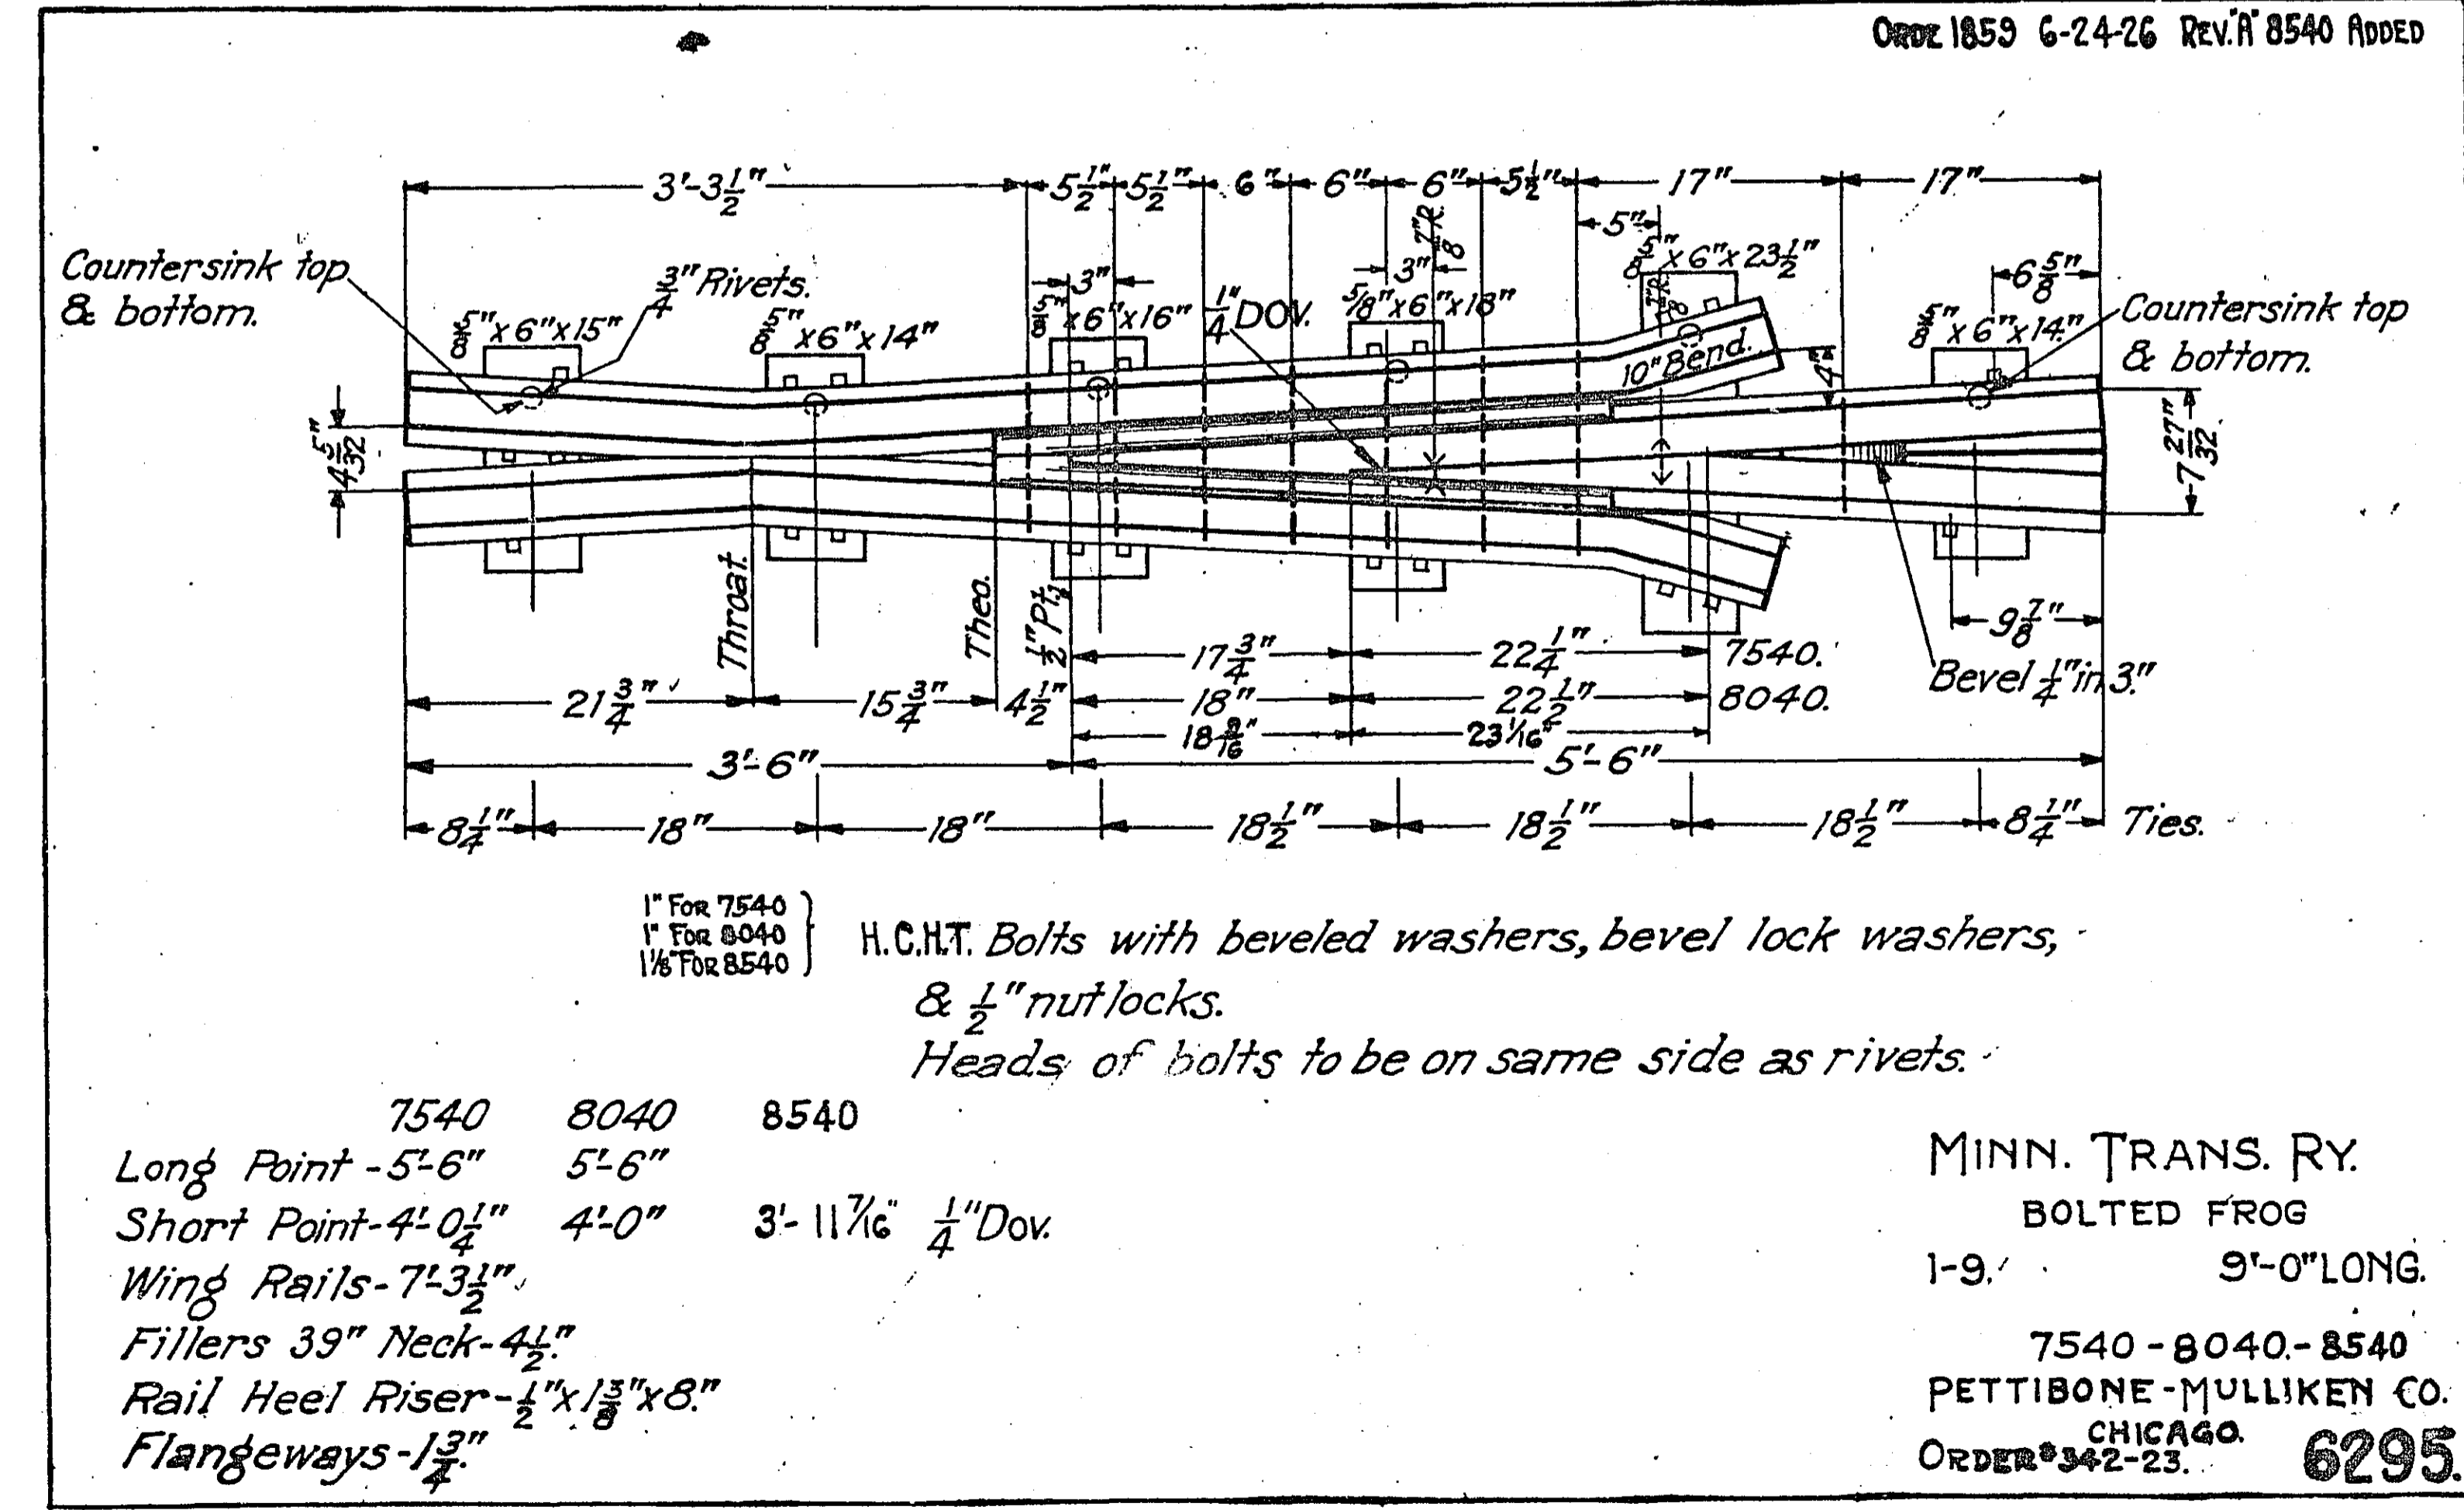 ORDE 1859 6-24-26 REV."A" 8540 ADDED
3'-3 1/2" 5 1/2" 5 1/2" 6" 6" 6" 5 1/2" 17" 17"
5"
Countersink top
& bottom.
3/4" Rivets.
3"
3"
7/8" R.
6 5/8"
Countersink top
& bottom.
5/8" x 6" x 15"
5/8" x 6" x 14"
5/8" x 6" x 16"
1/4" DOV.
5/8" x 6" x 18"
5/8" x 6" x 23 1/2"
5/8" x 6" x 14"
10" Bend.
4"
4 5/32"
7 27/32"
Throat.
Theo.
1/2" Pt.
9 7/8"
Bevel 1/4" in 3."
17 3/4" 22 1/4" 7540.
21 3/4" 15 3/4" 4 1/2" 18" 22 1/2" 8040.
18 9/16" 23 1/16"
3'-6" 5'-6"
8 1/4" 18" 18" 18 1/2" 18 1/2" 18 1/2" 8 1/4" Ties.
1" FOR 7540
1" FOR 8040
1 1/8" FOR 8540
H.C.H.T. Bolts with beveled washers, bevel lock washers,
& 1/2" nutlocks.
Heads of bolts to be on same side as rivets.
7540 8040 8540
Long Point - 5'-6" 5'-6"
Short Point - 4'-0 1/4" 4'-0" 3'-11 7/16" 1/4" Dov.
Wing Rails - 7'-3 1/2"
Fillers 39" Neck - 4 1/2."
Rail Heel Riser - 1/2" x 1 3/8" x 8."
Flangeways - 1 3/4."
MINN. TRANS. RY.
BOLTED FROG
1-9. 9'-0" LONG.
7540 - 8040. - 8540
PETTIBONE-MULLIKEN CO.
CHICAGO.
ORDER # 342-23.
6295.